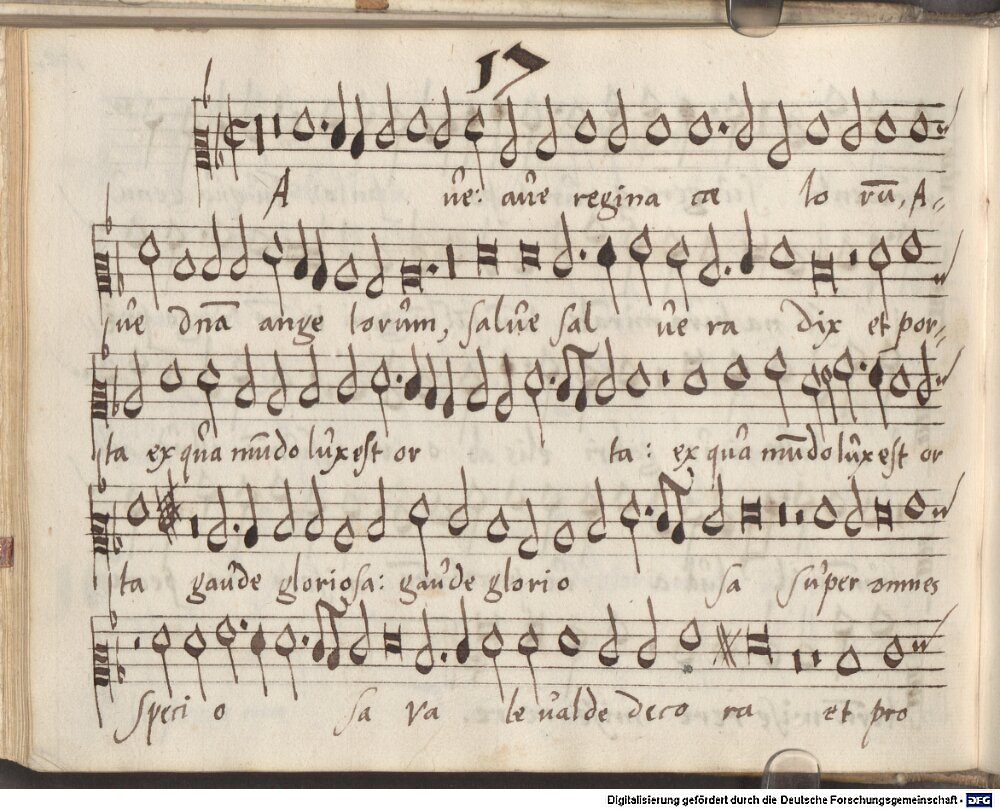 17
A ve: ave regina cæ lo rū, A-
ve dnā ange lorum, salve sal ve ra dix et por-
ta ex qua mūdo lux est or ta: ex qua mūdo lux est or
ta gaude gloriosa: gaude glorio sa super omnes
speci o sa va le valde deco ra et pro
Digitalisierung gefördert durch die Deutsche Forschungsgemeinschaft - DFG